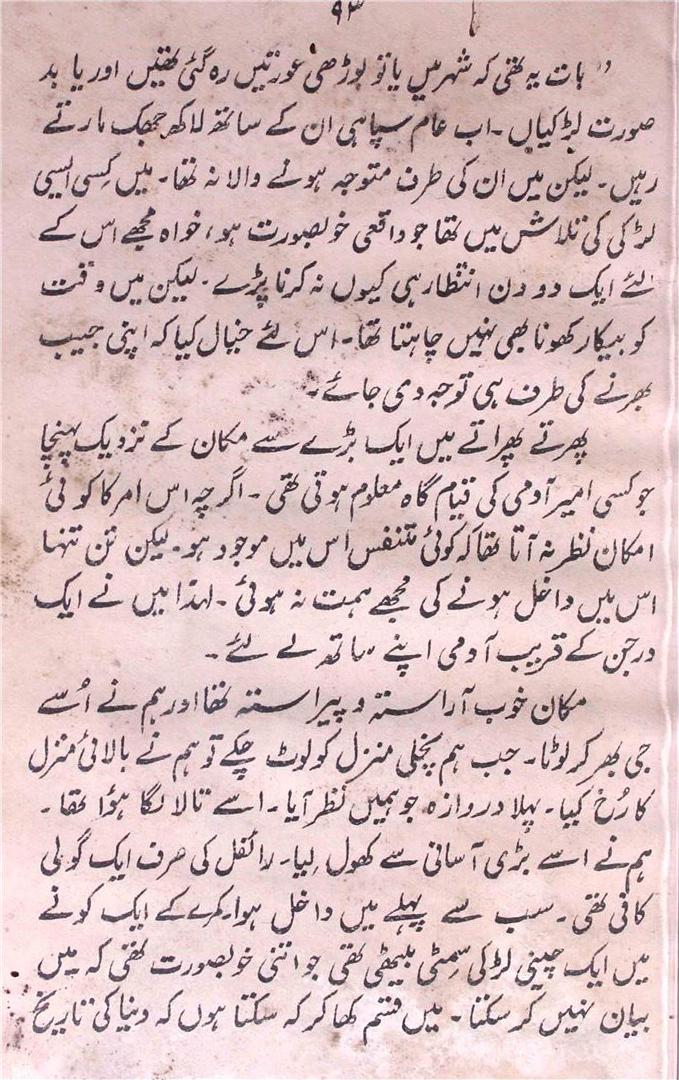 ۹۳
"بات یہ تھی کہ شہر میں یا تو بوڑھی عورتیں رہ گئی تھیں اور یا بد
صورت لڑکیاں ۔ اب عام سپاہی ان کے ساتھ لاکھ جھک مارتے
رہیں ۔ لیکن میں ان کی طرف متوجہ ہونے والا نہ تھا ۔ میں کسی ایسی
لڑکی کی تلاش میں تھا جو واقعی خوبصورت ہو، خواہ مجھے اس کے
لئے ایک دو دن انتظار ہی کیوں نہ کرنا پڑے ۔ لیکن میں وقت
کو بیکار کھونا بھی نہیں چاہتا تھا ۔ اس لئے خیال کیا کہ اپنی جیب
بھرنے کی طرف ہی توجہ دی جائے ۔
پھرتے پھراتے میں ایک بڑے سے مکان کے نزدیک پہنچا
جو کسی امیر آدمی کی قیام گاہ معلوم ہوتی تھی ۔ اگرچہ اس امر کا کوئی
امکان نظر نہ آتا تھا کہ کوئی متنفس اس میں موجود ہو ۔ لیکن تن تنہا
اس میں داخل ہونے کی مجھے ہمت نہ ہوئی ۔ لہذا میں نے ایک
درجن کے قریب آدمی اپنے ساتھ لے لئے ۔
مکان خوب آراستہ و پیراستہ تھا اور ہم نے اُسے
جی بھر کر لوٹا ۔ جب ہم نچلی منزل کو لوٹ چکے تو ہم نے بالائی منزل
کا رُخ کیا ۔ پہلا دروازہ جو ہمیں نظر آیا ۔ اسے تالا لگا ہؤا تھا ۔
ہم نے اسے بڑی آسانی سے کھول لیا ۔ رائفل کی صرف ایک گولی
کافی تھی ۔ سب سے پہلے میں داخل ہوا ۔ کمرے کے ایک کونے
میں ایک چینی لڑکی سِمٹی بیٹھی تھی جو اتنی خوبصورت تھی کہ میں
بیان نہیں کر سکتا ۔ میں قسم کھا کر کہہ سکتا ہوں کہ دنیا کی تاریخ